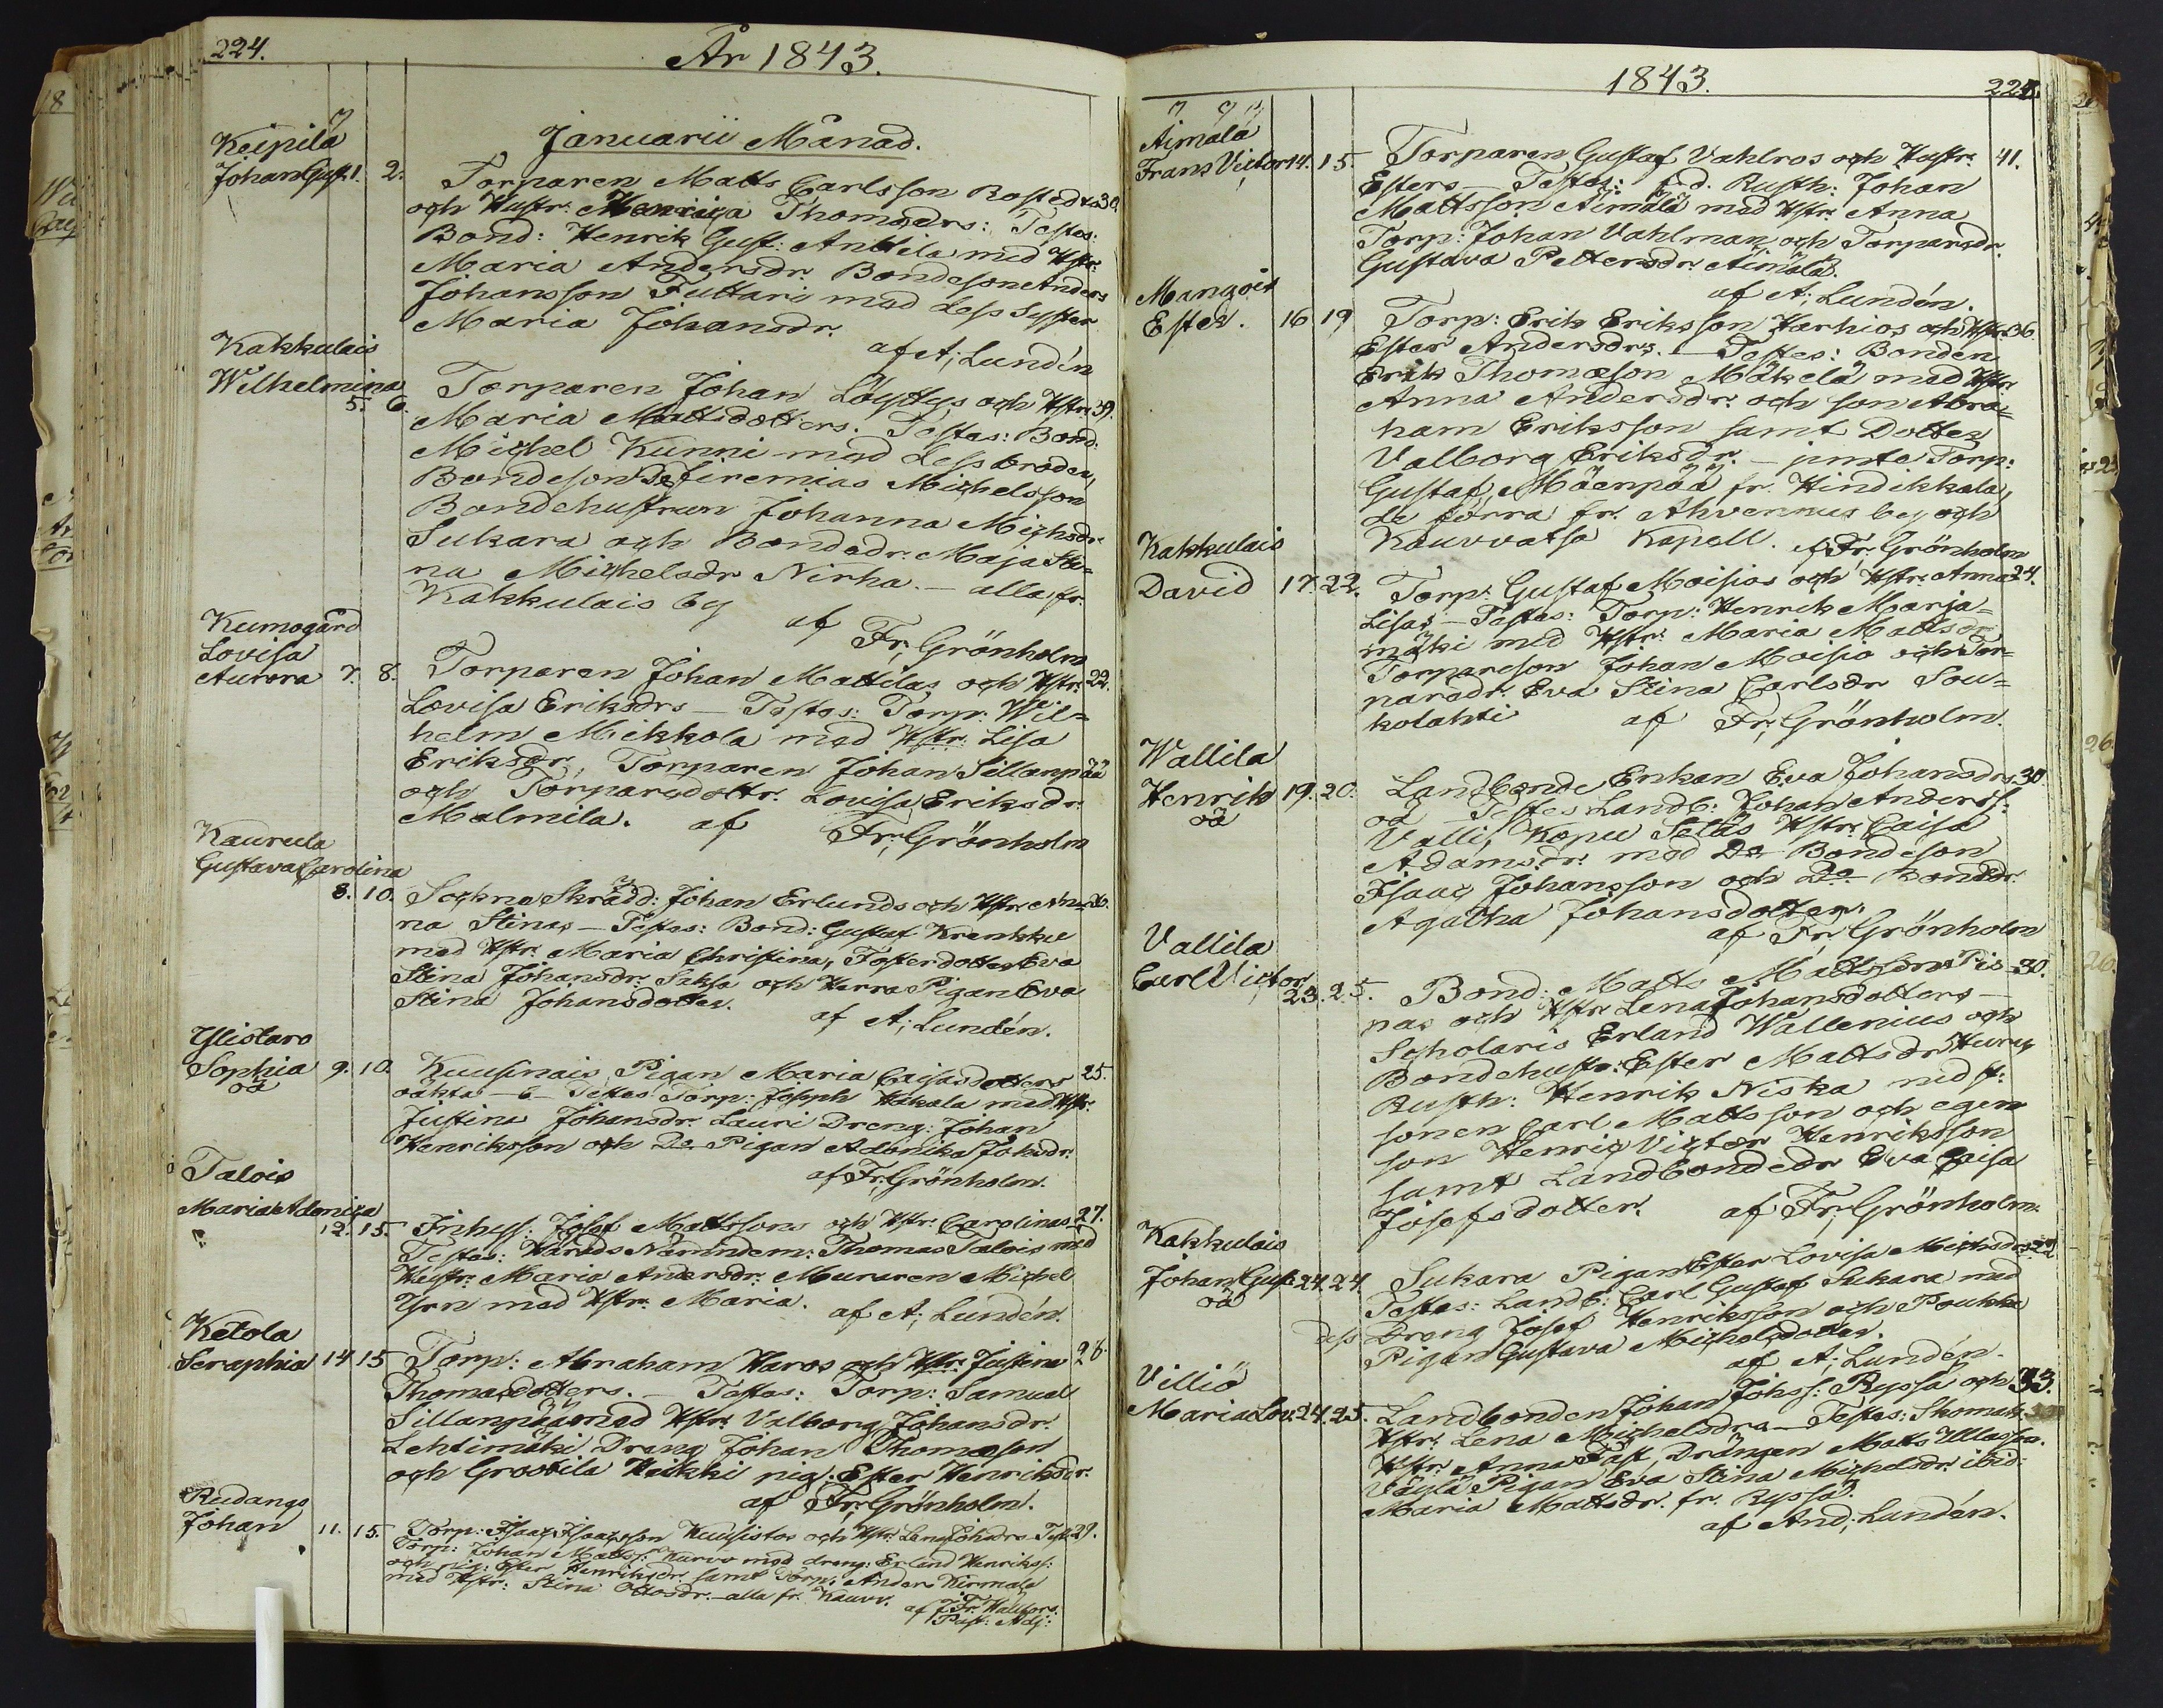 224.
År 1843.
Januarii Månad.
Keipilä
Johan Gust. 1. 2. Torparen Matts Carlsson Rostedts 30.
och Hustr: Henrica Thomædrs: Testes:
Bond: Henrik Gust: Anttila med Hstr:
Maria Andersdr. Bondeson Anders
Johansson Tuttari med dess Syster
Maria Johansdr.
af A; Lundén
Kakkulais
Wilhelmina
5. 6. Torparen Johan Löyttys och Hstr: 39.
Maria Mattsdotters. Testes: Bond:
Michel Kunni med dess broder,
Bondeson Jeremias Michelsson
Bondehustrun Johanna Michsdr.
Sukara och Bondedr. Maja Sti=
na Michelsdr Nirha. - alla fr.
Kakkulais by
af Fr; Grönholm
Kumogård
Lovisa
Aurora 7. 8. Torparen Johan Mattilas och Hstr: 22.
Lovisa Eriksdrs - Testes: Torp: Wil=
helm Mikkola med Hstr: Lisa
Eriksdr, Torparen Johan Sillanpää
och Torparedottr. Lovisa Eriksdr.
Malmila. af Fr; Grönholm
Kaurula
Gustava Carolina
8. 10. Sochne Skrädd: Johan Erlunds och Hstr. An= 36.
na Stinas - Testes: Bond: Gustaf Krankku
med Hstr. Maria Christina, Fosterdotter Eva
Stina Johansdr. Saksa och Herra Pigan Eva
Stina Johansdotter.
af A; Lundén.
Ylistaro
Sophia 9. 10. Kuusinais Pigan Maria Caisasdotters 25.
oä
oäkta - Testes Torp: Joseph Hakala med Hstr:
Justina Johansdr. Lauri Dreng: Johan
Henriksson och Do Pigan Adonika Johsdr.
af Fr; Grönholm.
Talois
Maria Adonica
12. 15. Inhys: Josef Mattssons och Hstr: Carolinas 27.
Testes: Härads Nämndem: Thomas Talois med
Hustr: Maria Andersdr. Muraren Michel
Yrn med Hstr. Maria. af A; Lundén.
Ketola
Seraphia 14 15 Torp: Abraham Haros och Hstr: Justina 28.
Thomædotters. - Testes: Torp: Samuel
Sillanpää med Hstr: Valborg Johansdr.
Lehtimäki Dreng Johan Thomæson
och Grootila Heikki pig: Ester Henriksdr.
af Fr; Grönholm.
Rudangs
Johan 11. 15. Torp: Isaac Isaacsson Kuusistos och Hstr: Lena Johsdrs Test: 29.
Torp: Johan Mattss: Kurvo med dreng: Erland Henrikss:
och pig: Ester Henriksdr. samt Torp: Anders Kirmala
med Hstr: Stina Ottosdr. - alla fr. Kauvv.
af J. Fr. Wallfors.
Past: Adj:
1843.
225.
Äimälä
Frans Victor 14. 15. Torparen Gustaf Vahlros och Hustr: 41.
Esters - Testes: f.d. Rusth: Johan
Mattsson Äimälä med Hstr: Anna
Torp: Johan Vahlman och Torparedr.
Gustava Pettersdr. Äimälä.
af A; Lundén.
Mangois
Ester. 16 19 Torp: Erik Eriksson Harhios och Hstr: 36
Ester Andersdrs. - Testes: Bonden
Erik Thomæson Mäkelä med Hstr:
Anna Andersdr: och son Abra=
ham Eriksson samt Dotter
Valborg Eriksdr. - jemte Torp:
Gustaf Mäenpää fr. Hindikkala,
de förra fr. Ahvennus by och
Kauvvatsa Kapell. af Fr; Grönholm
Kakkulais
David 17. 22. Torp: Gustaf Moisios och Hstr: Anna 24.
Lisas - Testes: Torp: Henrik Marja=
mäki med Hstr: Maria Mattsdr
Torpareson Johan Moisio och Tor=
paredr: Eva Stina Carlsdr Sou=
kolahti af Fr; Grönholm.
Wallila
Henrik 19. 20. Landbonde Enkan Eva Johansdrs 30
oä
oä Testes Landb: Johan Anderss:
Valli, Kapu Selas Hstr: Caisa
Adamsdr: med Do Bondeson
Isaac Johansson och Do Bondedr.
Agatha Johansdotter.
af Fr; Grönholm
Vallila
Carl Victor
23. 25. Bond: Matts Mattssons Pis= 30.
pas och Hstr Lena Johansdotters -
Scholaris Erland Wallenius och
Bondehustr: Ester Mattsdr
Rusth: Henrik Niska med st:
sonen Carl Mattsson och egen
son Henric Victor Henriksson
samt Landbondedr Eva Caisa
Josefsdotter. af Fr; Grönholm.
Kakkulais
Johan Gust. 24. 24. Sukara Pigan Ester Lovisa Michsdrs 22
oä
Testes: Landb: Carl Gustaf Sukara med
dess Dreng Josef Henriksson och Poukka
Pigan Gustava Michelsdotter.
af A; Lundén.
Villiö
Maria Lov. 24. 25. Landbonden Johan Johss: Ryssä och 33.
Hstr: Lena Michelsdrs - Testes: Skomak:
Hstr: Anna Fast, Drängen Matts
Pigan Eva Stina Michelsdr. ibid:
Maria Mattsdr. fr. Ryssä.
af And; Lundén.